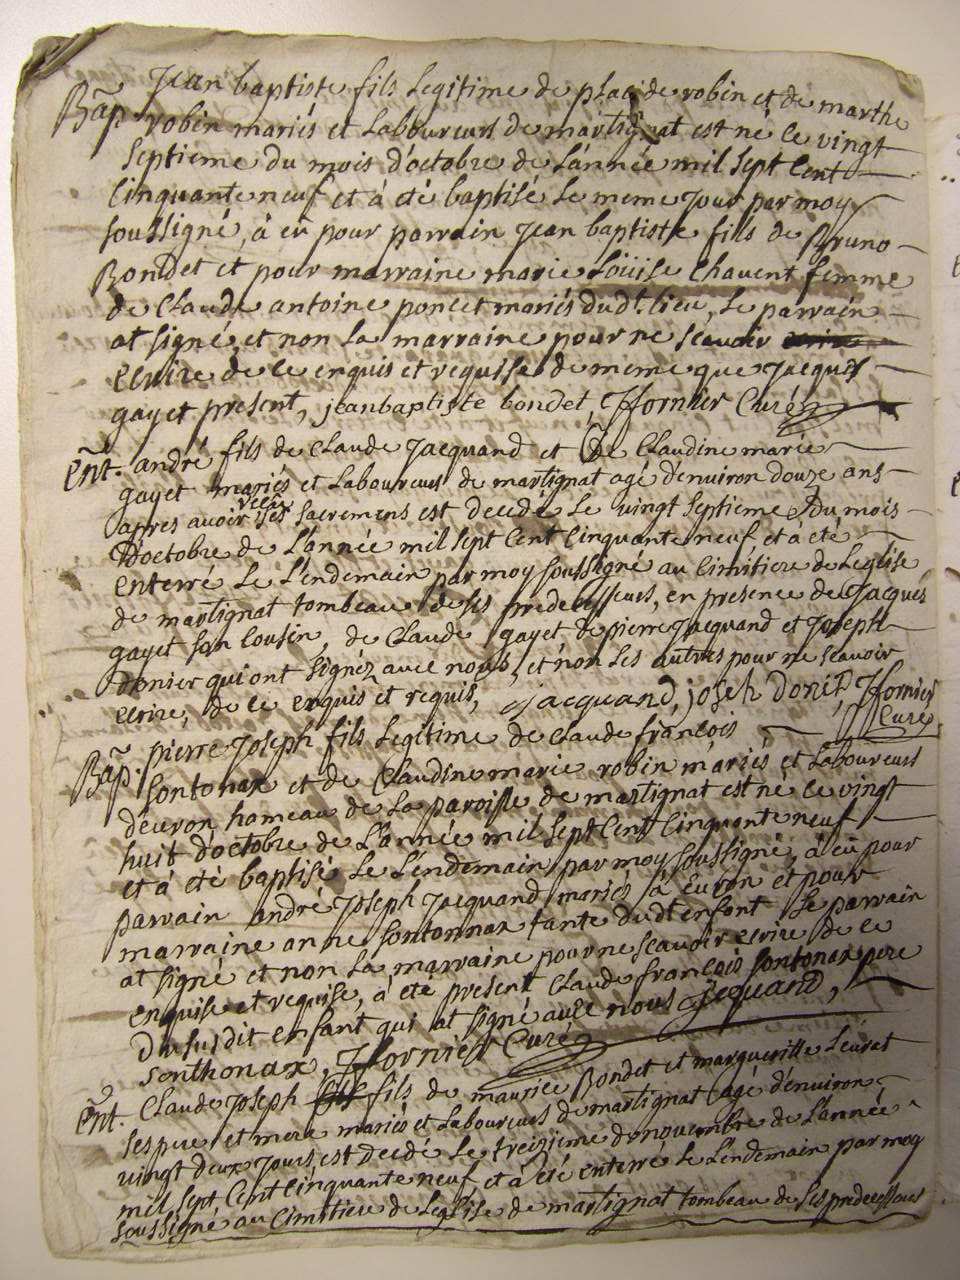 Jean baptiste fils legitime de placide robin et de marthe
Bap. robin mariés et Laboureurs de martignat est né le vingt
septieme du mois d'octobre de L'année mil sept Cent
Cinquante neuf et à eté baptisé Le meme Jour par moy
soussigné, à eü pour parrain Jean baptiste fils de Bruno
Bondet et pour marraine marie Loüise Chavent femme
de Claude antoine poncet mariés dud.t lieu, Le parrain
at signé et non La marraine pour ne scavoir
ecrire de ce enquis et requisse de meme que Jacques
gayet present, jean baptiste bondet, Fornier Curé
Ent. andré fils de Claude Jacquand et de Claudine marie
gayet mariés et Laboureurs de martignat agé d'environ douze ans
apres avoir reçu les Sacremens est decedé Le vingt septieme du mois
D'octobre de L'année mil sept Cent Cinquante neuf et à eté
enterré Le L'endemain par moy soussigné au Cimitiere de Leglise
de martignat tombeau de ses predecesseurs, en presence de Jacques
gayet son Cousin, de Claude gayet de pierre Jacquand et Joseph
donier qui ont signéz avec nous, et non Les autres pour ne scavoir
ecrire, de ce enquis et requis, Jacquand, joseh donié, Fornier
Curé
Bap. pierre Joseph fils Legitime de Claude françois
sontonax et de Claudine marie robin mariés et Laboureurs
d'evron hameau de La paroisse de martignat est né le vingt
huit d'octobre de L'année mil sept Cent Cinquante neuf
et à eté baptisé Le L'endemain par moy soussigné, à eü pour
parrain andré Joseph Jacquand mariés à Evron et pour
marraine anne sontonnax tante dud.t enfont Le parrain
at signé et non La marraine pour ne scavoir ecrire de ce
enquise et requise, à eté present Claude françois sontonax pere
Du susdit enfant qui at signé avec nous Jequand,
sonthonax, Fornier Curé
Ent. Claude Joseph fils de maurice Bondet et margueritte Leurat
ses pere et mere mariés et Laboureurs de martignat agé d'environ
vingt deux Jours est decedé Le treizieme de novembre de L'année
mil sept Cent Cinquante neuf et à eté enterré Le L'endemain par moy
soussigné au Cimitiere de Leglise de martignat tombeau de ses predecesseurs